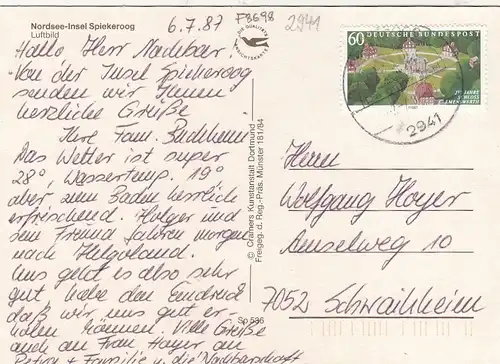 Nordsee-Insel Spiekeroog
Luftbild
6.7.87
F8698
2941
Hallo Herr Nachbar!
Von der Insel Spiekeroog
senden wir Ihnen
herzliche Grüße
Ihre Fam.
Das Wetter ist super
28°, Wassertemp. 19°
aber zum Baden herrlich
erfrischend. Holger und
sein Freund fahren morgen
nach Helgoland.
Uns geht es also sehr
gut habe den Eindruck
daß wir uns gut er-
holen können. Viele Grüße
auch an Frau Hoyer an
Petra + Familie u. die Nachbarschaft
© Cramers Kunstanstalt Dortmund
Freigeg. d. Reg.-Präs. Münster 181/84
Sp 536
60 DEUTSCHE BUNDESPOST
SCHLOSS
CLEMENSWERTH
2941
Herrn
Wolfgang Hoyer
Amselweg 10
7052 Schwaikheim